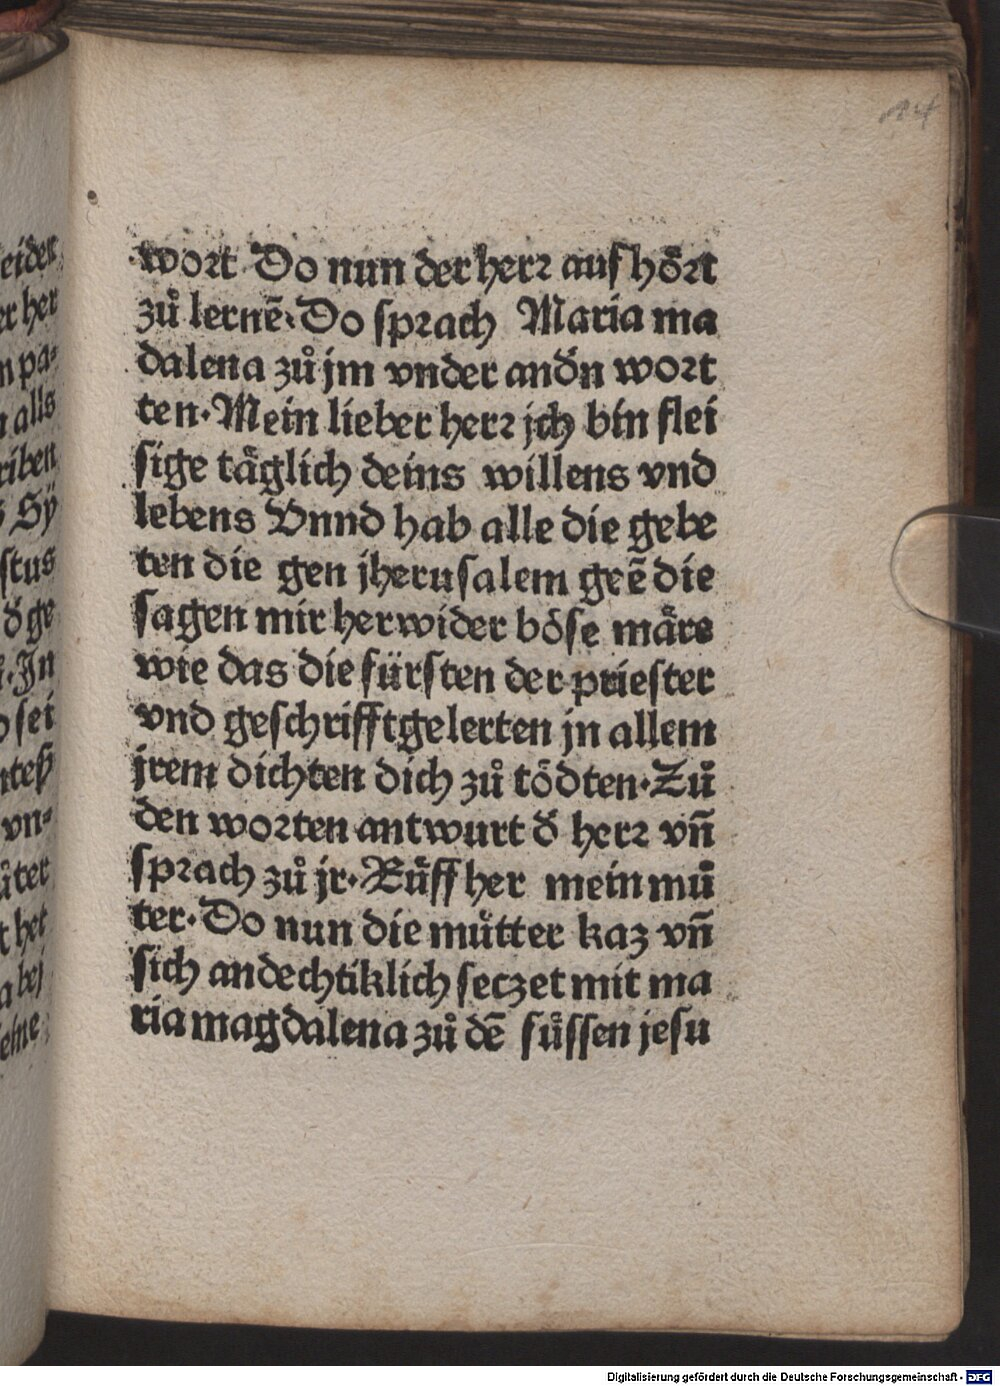 wort Do nun der herr auf hört
zů lernē. Do sprach Maria ma
dalena zů jm vnder andn̄ wort
ten. Mein lieber herr jch bin flei
sige täglich deins willens vnd
lebens Vnnd hab alle die gebe
ten die gen jherusalem geē die
sagen mir herwider böse märe
wie das die fürsten der priester
vnd geschrifftgelerten jn allem
jrem dichten dich zů tödten. Zů
den worten antwurt d̄ herr vn̄
sprach zů jr. Růff her mein mů
ter. Do nun die můtter kaz vn̄
sich andechtiklich seczet mit ma
ria magdalena zů dē süssen jesu
eiden
er her
n pa-
alls
riben
Sÿ
stus
d̄ ge
Jn
sei
nteß
vn-
ůter
t het
a bej
eine
Digitalisierung gefördert durch die Deutsche Forschungsgemeinschaft - DFG